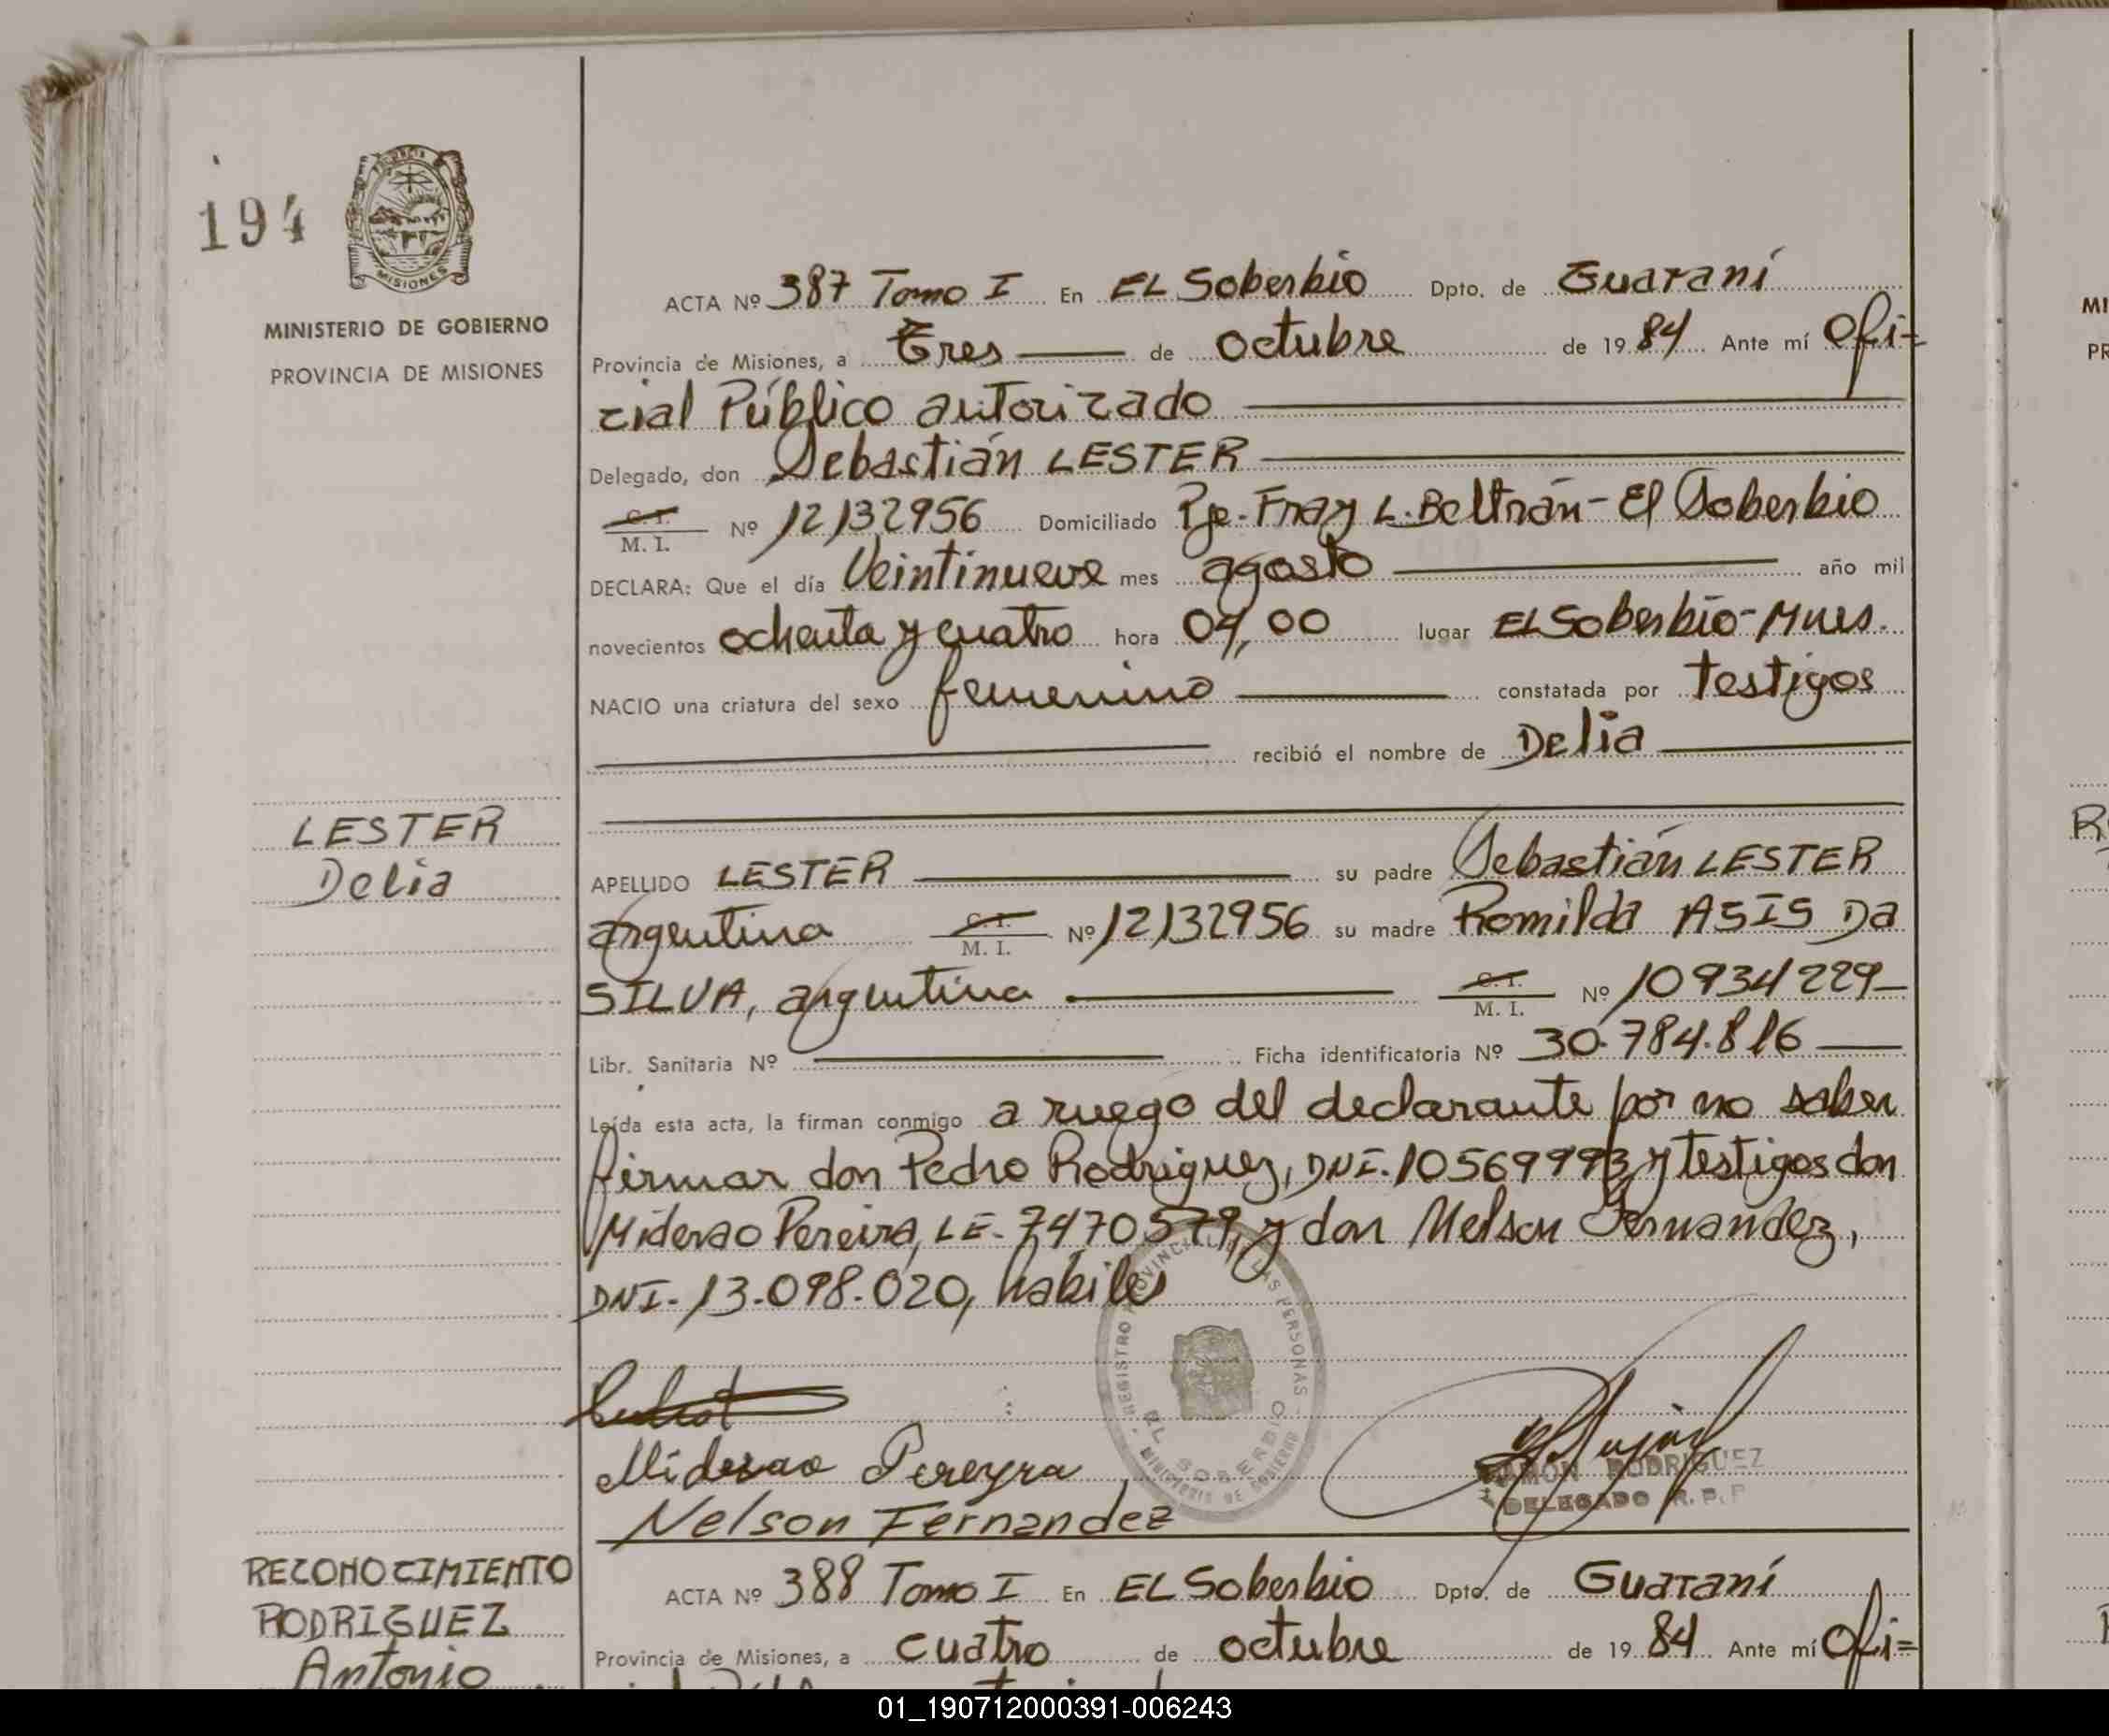 194
MISIONES
MINISTERIO DE GOBIERNO
PROVINCIA DE MISIONES
ACTA Nº 387 Tomo I En EL Soberbio Dpto. de Guaraní
Provincia de Misiones, a Tres de octubre de 1984 Ante mí Ofi=
cial Público autorizado
Delegado, don Sebastián LESTER
C. I. M. I. Nº 12132956 Domiciliado Pje. Fray L. Beltrán - El Soberbio
DECLARA: Que el día Veintinueve mes agosto año mil
novecientos ochenta y cuatro hora 04,00 lugar EL Soberbio - Mnes.
NACIO una criatura del sexo femenino constatada por testigos
recibió el nombre de Delia
LESTER
Delia
APELLIDO LESTER su padre Sebastián LESTER
argentina C. I. M. I. Nº 12132956 su madre Romilda ASIS Da
SILVA, argentina C. I. M. I. Nº 10934229
Libr. Sanitaria Nº Ficha identificatoria Nº 30.784.816
Leída esta acta, la firman conmigo a ruego del declarante por no saber
firmar don Pedro Rodriguez, DNI. 10569993 y testigos don
Miderao Pereira, LE. 7470579, y don Nelson Fernandez,
DNI. 13.098.020, habiles
REGISTRO PROVINCIAL DE LAS PERSONAS
EL SOBERBIO
MINISTERIO DE GOBIERNO
Miderao Pereyra
Nelson Fernandez
RAMON RODRIGUEZ
DELEGADO R. P. P
RECONOCIMIENTO
RODRIGUEZ
Antonio
ACTA Nº 388 Tomo I En EL Soberbio Dpto. de Guaraní
Provincia de Misiones, a cuatro de octubre de 1984 Ante mí Ofi=
01_190712000391-006243